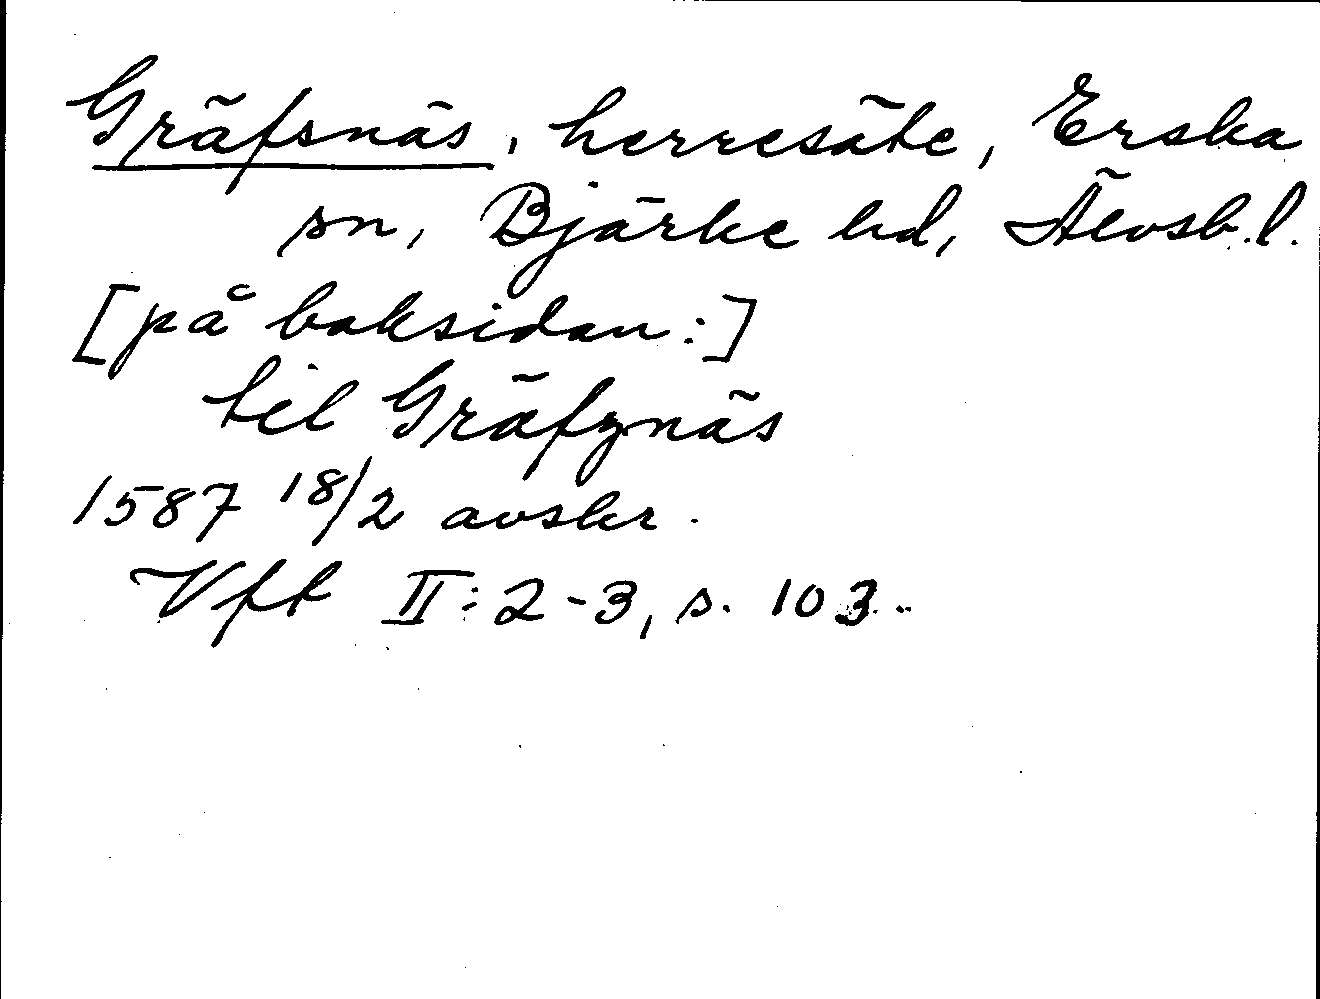 Gräfsnäs, herresäte, Erska
sn, Bjärke hd, Älvsb.l.
[på baksidan:]
til Gräfznäs
1587 18/2 avskr.
Vft II:2-3, s. 103.